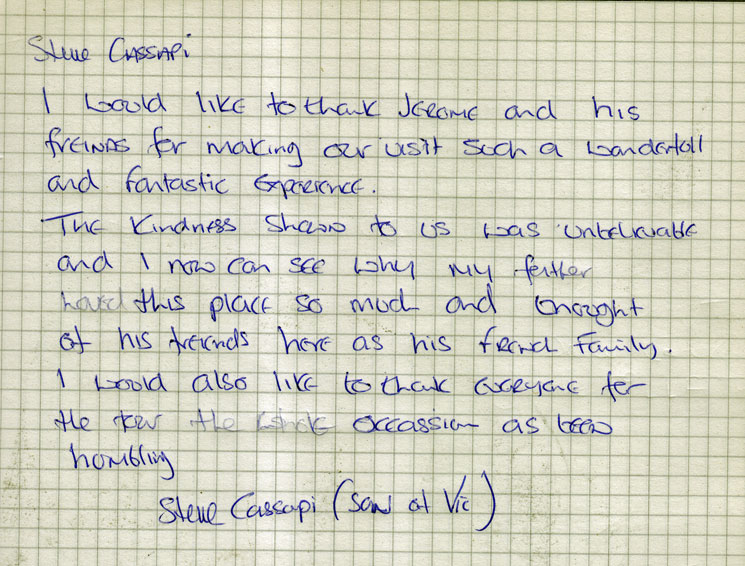 Steve Cassapi
I would like to thank Jerome and his
freinds for making our visit such a wonderfull
and fantastic experience.
The kindness shown to us was unbelievable
and I now can see why my father
loved this place so much and thought
of his freinds here as his french family.
I would also like to thank everyone for
the tour the whole occassion as been
humbling
Steve Cassapi (son of Vic)